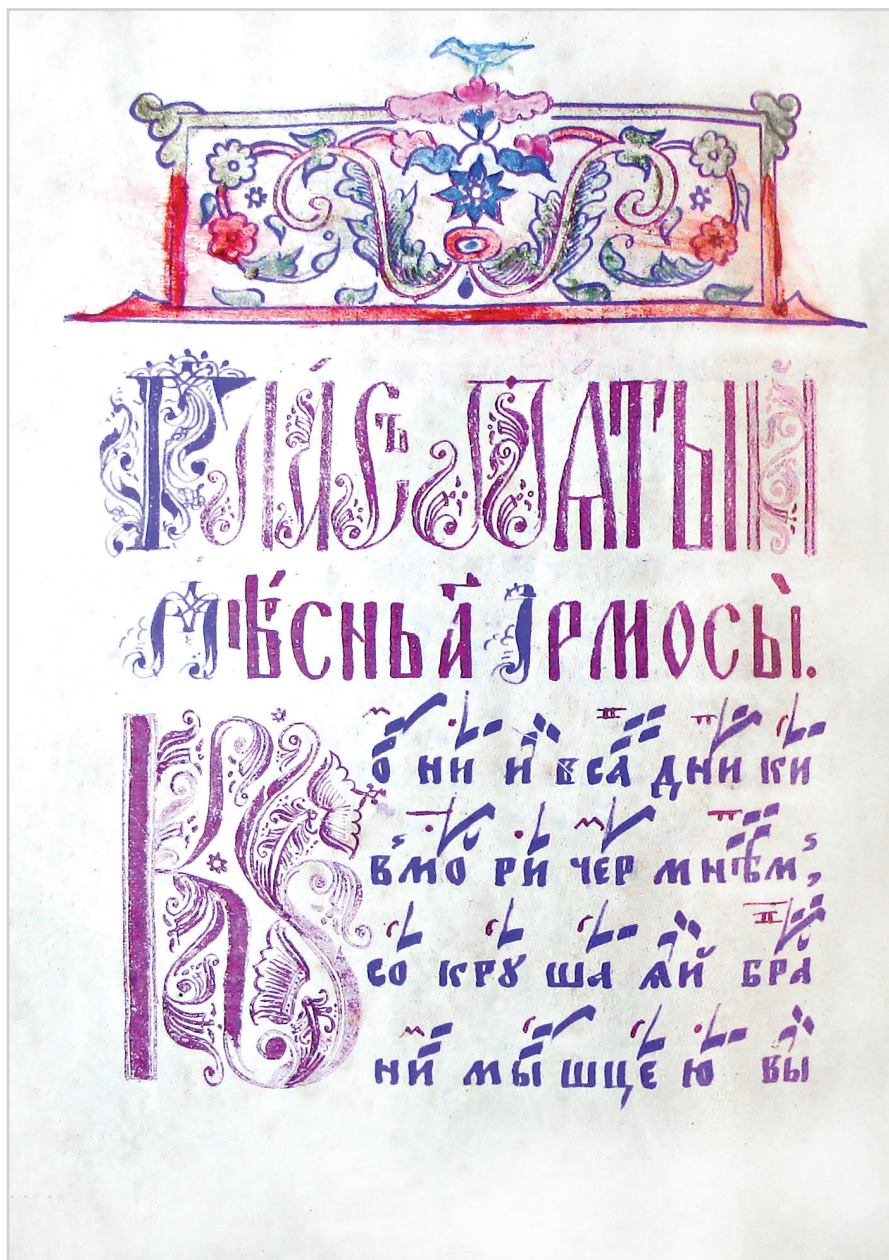 Гла́съ пѧтый
Пѣ́снь а҃ Ірмосы̀.
Ко́ ни и҆ вса́ дни ки
в̾мо ри чер мнѣм,
со крꙋ ша ѧ҆й бра
ни мы шце ю вы